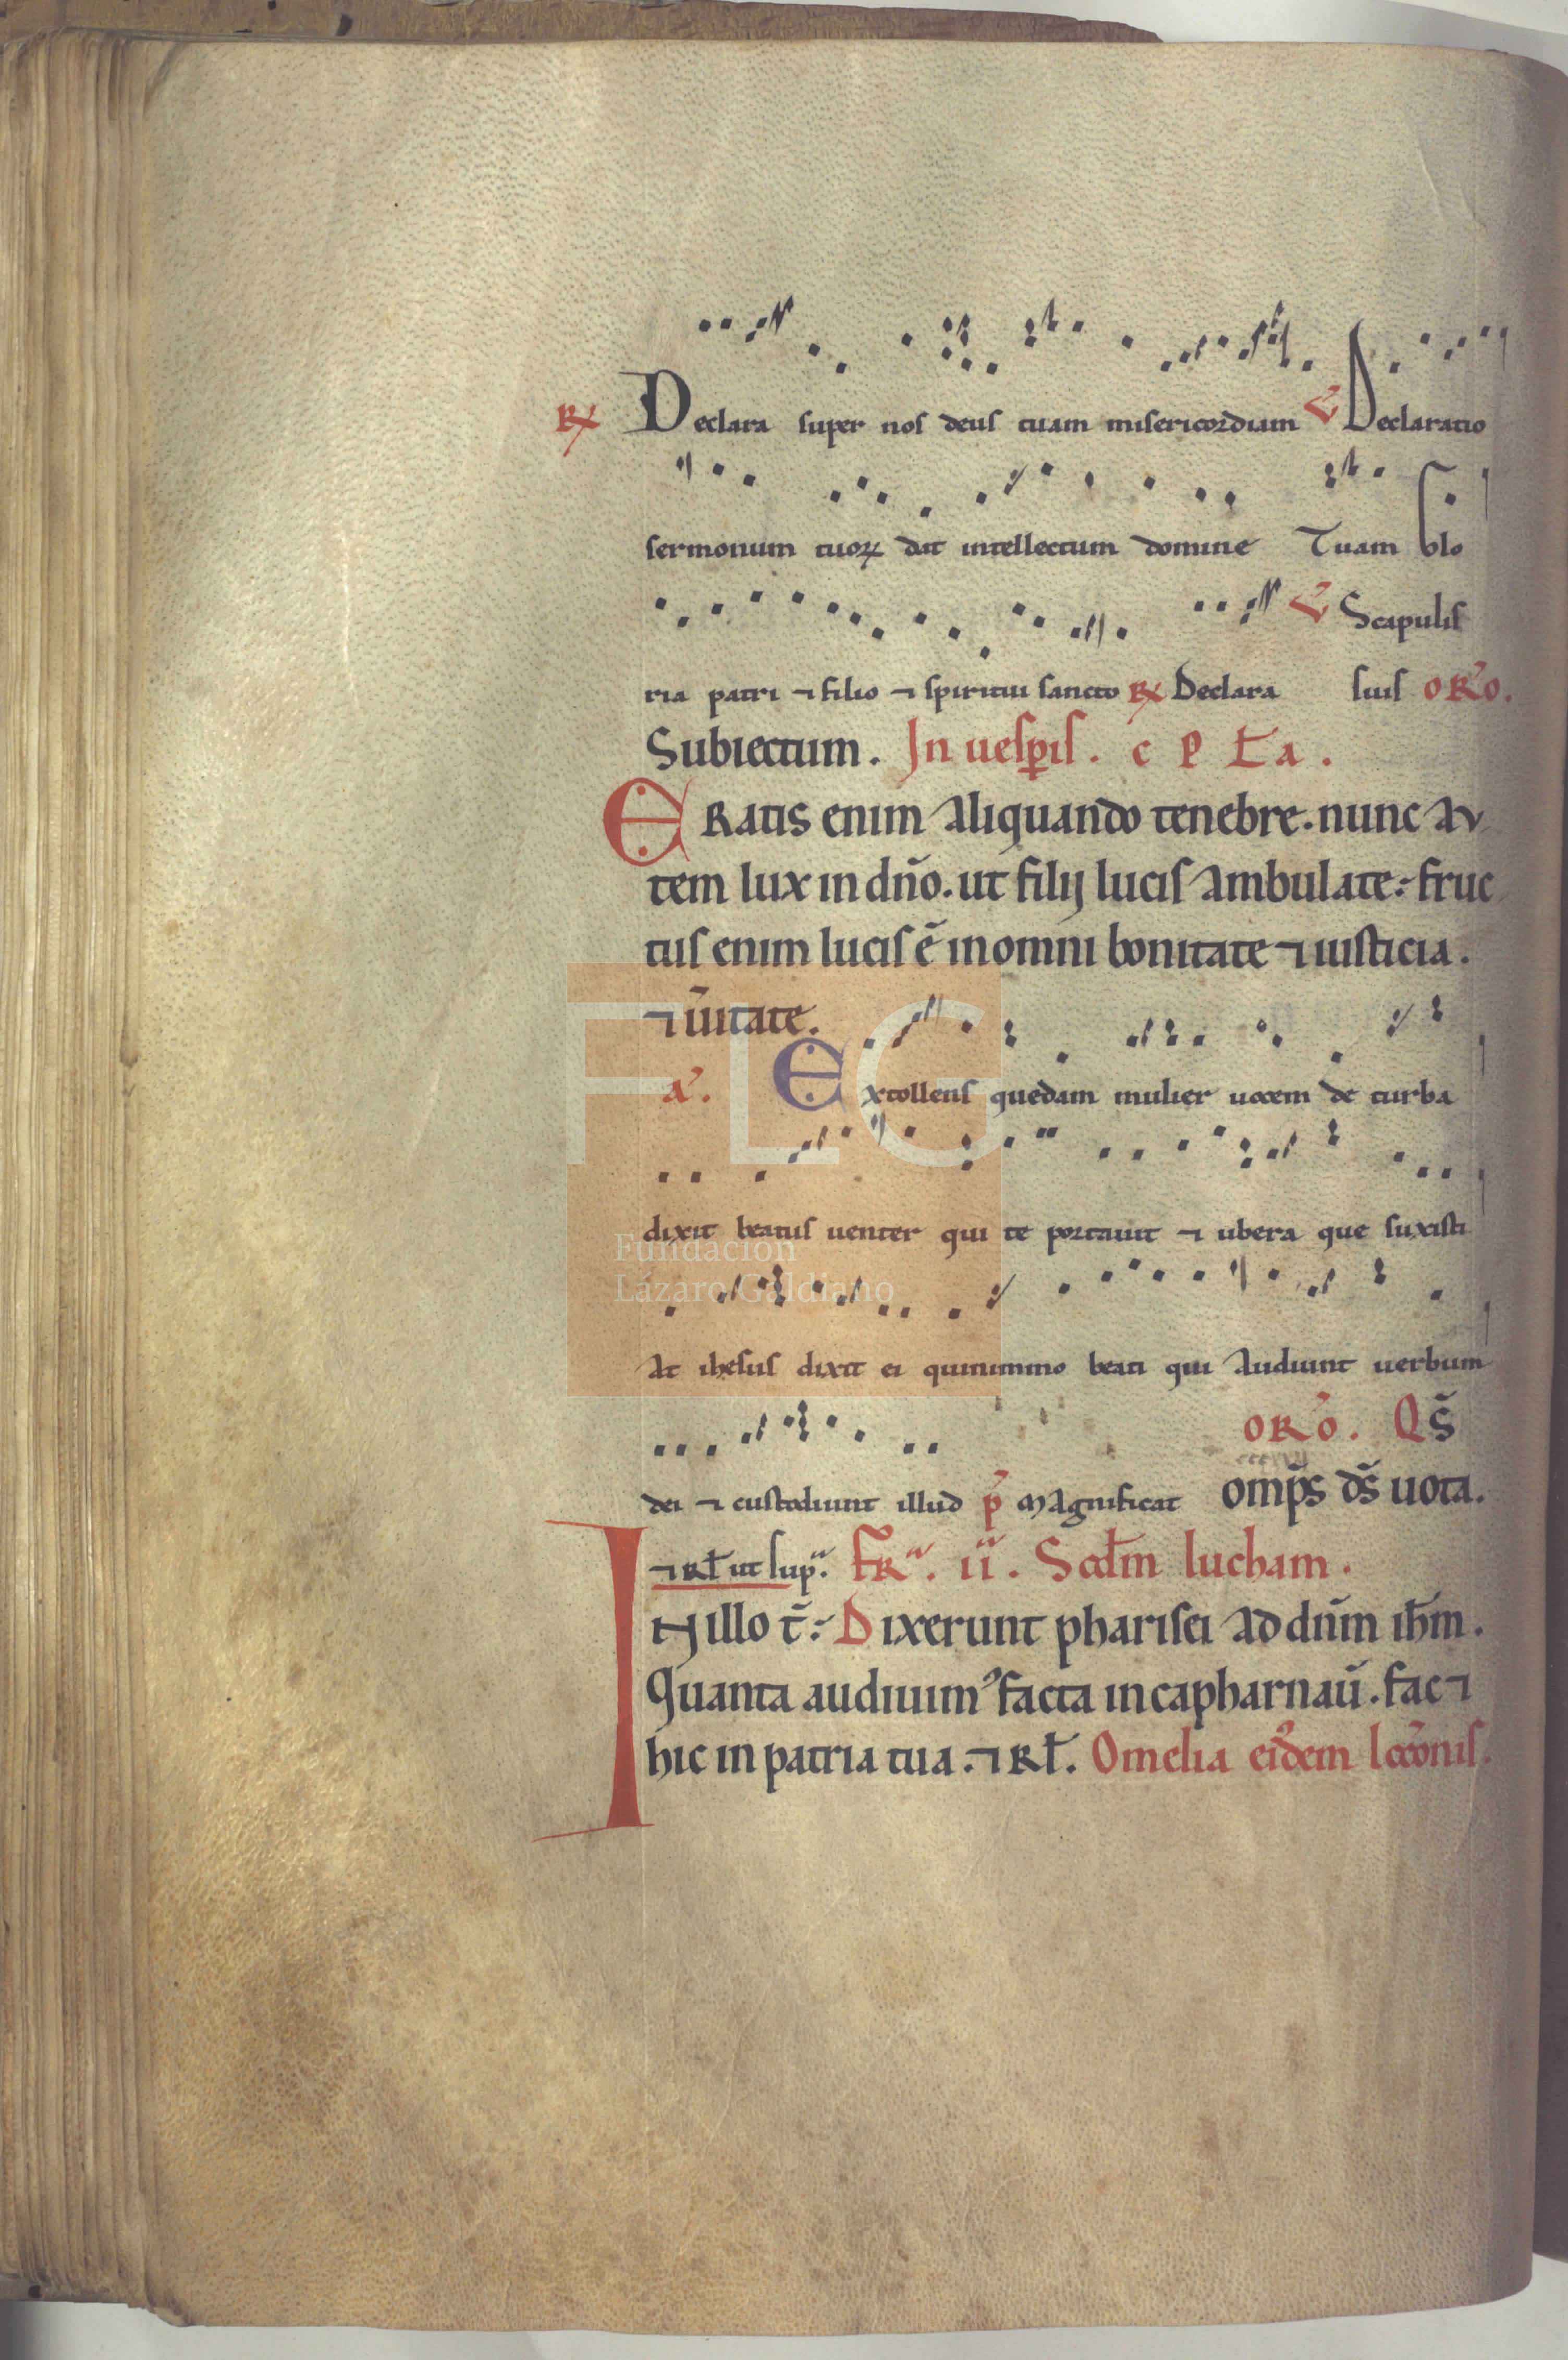 R Declara super nos deus tuam misericordiam V Declaratio
sermonum tuoꝝ dat intellectum domine Tuam Glo
V Scapulis
ria patri ⁊ filio ⁊ spiritui sancto R Declara suis oRo.
Subiectum. In uesꝑis. c P
ERatis enim aliquando tenebre. nunc au
tem lux in dño. ut filij lucis ambulate: fruc
tus enim lucis ẽ in omni bonitate ⁊ iusticia.
⁊ ũitate.
a. Excollens quedam mulier uocem de turba
dixit beatus uenter qui te portauit ⁊ ubera que suxisti
At ihesus dixit ei quinimmo beati qui audiunt uerbum
oRo. Qs̃
dei ⁊ custodiunt illud p̃ Magnificat omp̃s ds̃ uota.
⁊ Rł ut supª. FRª. ii. Scdm lucham.
IN illo t̃: Dixerunt pharisei ad dñm ihm̃.
Quanta audiuimꝰ facta in capharnaũ. fac ⁊
hic in patria tua. ⁊ Rł. Omelia eiꝰdem lectionis.
FLG
Fundación
Lázaro Galdiano